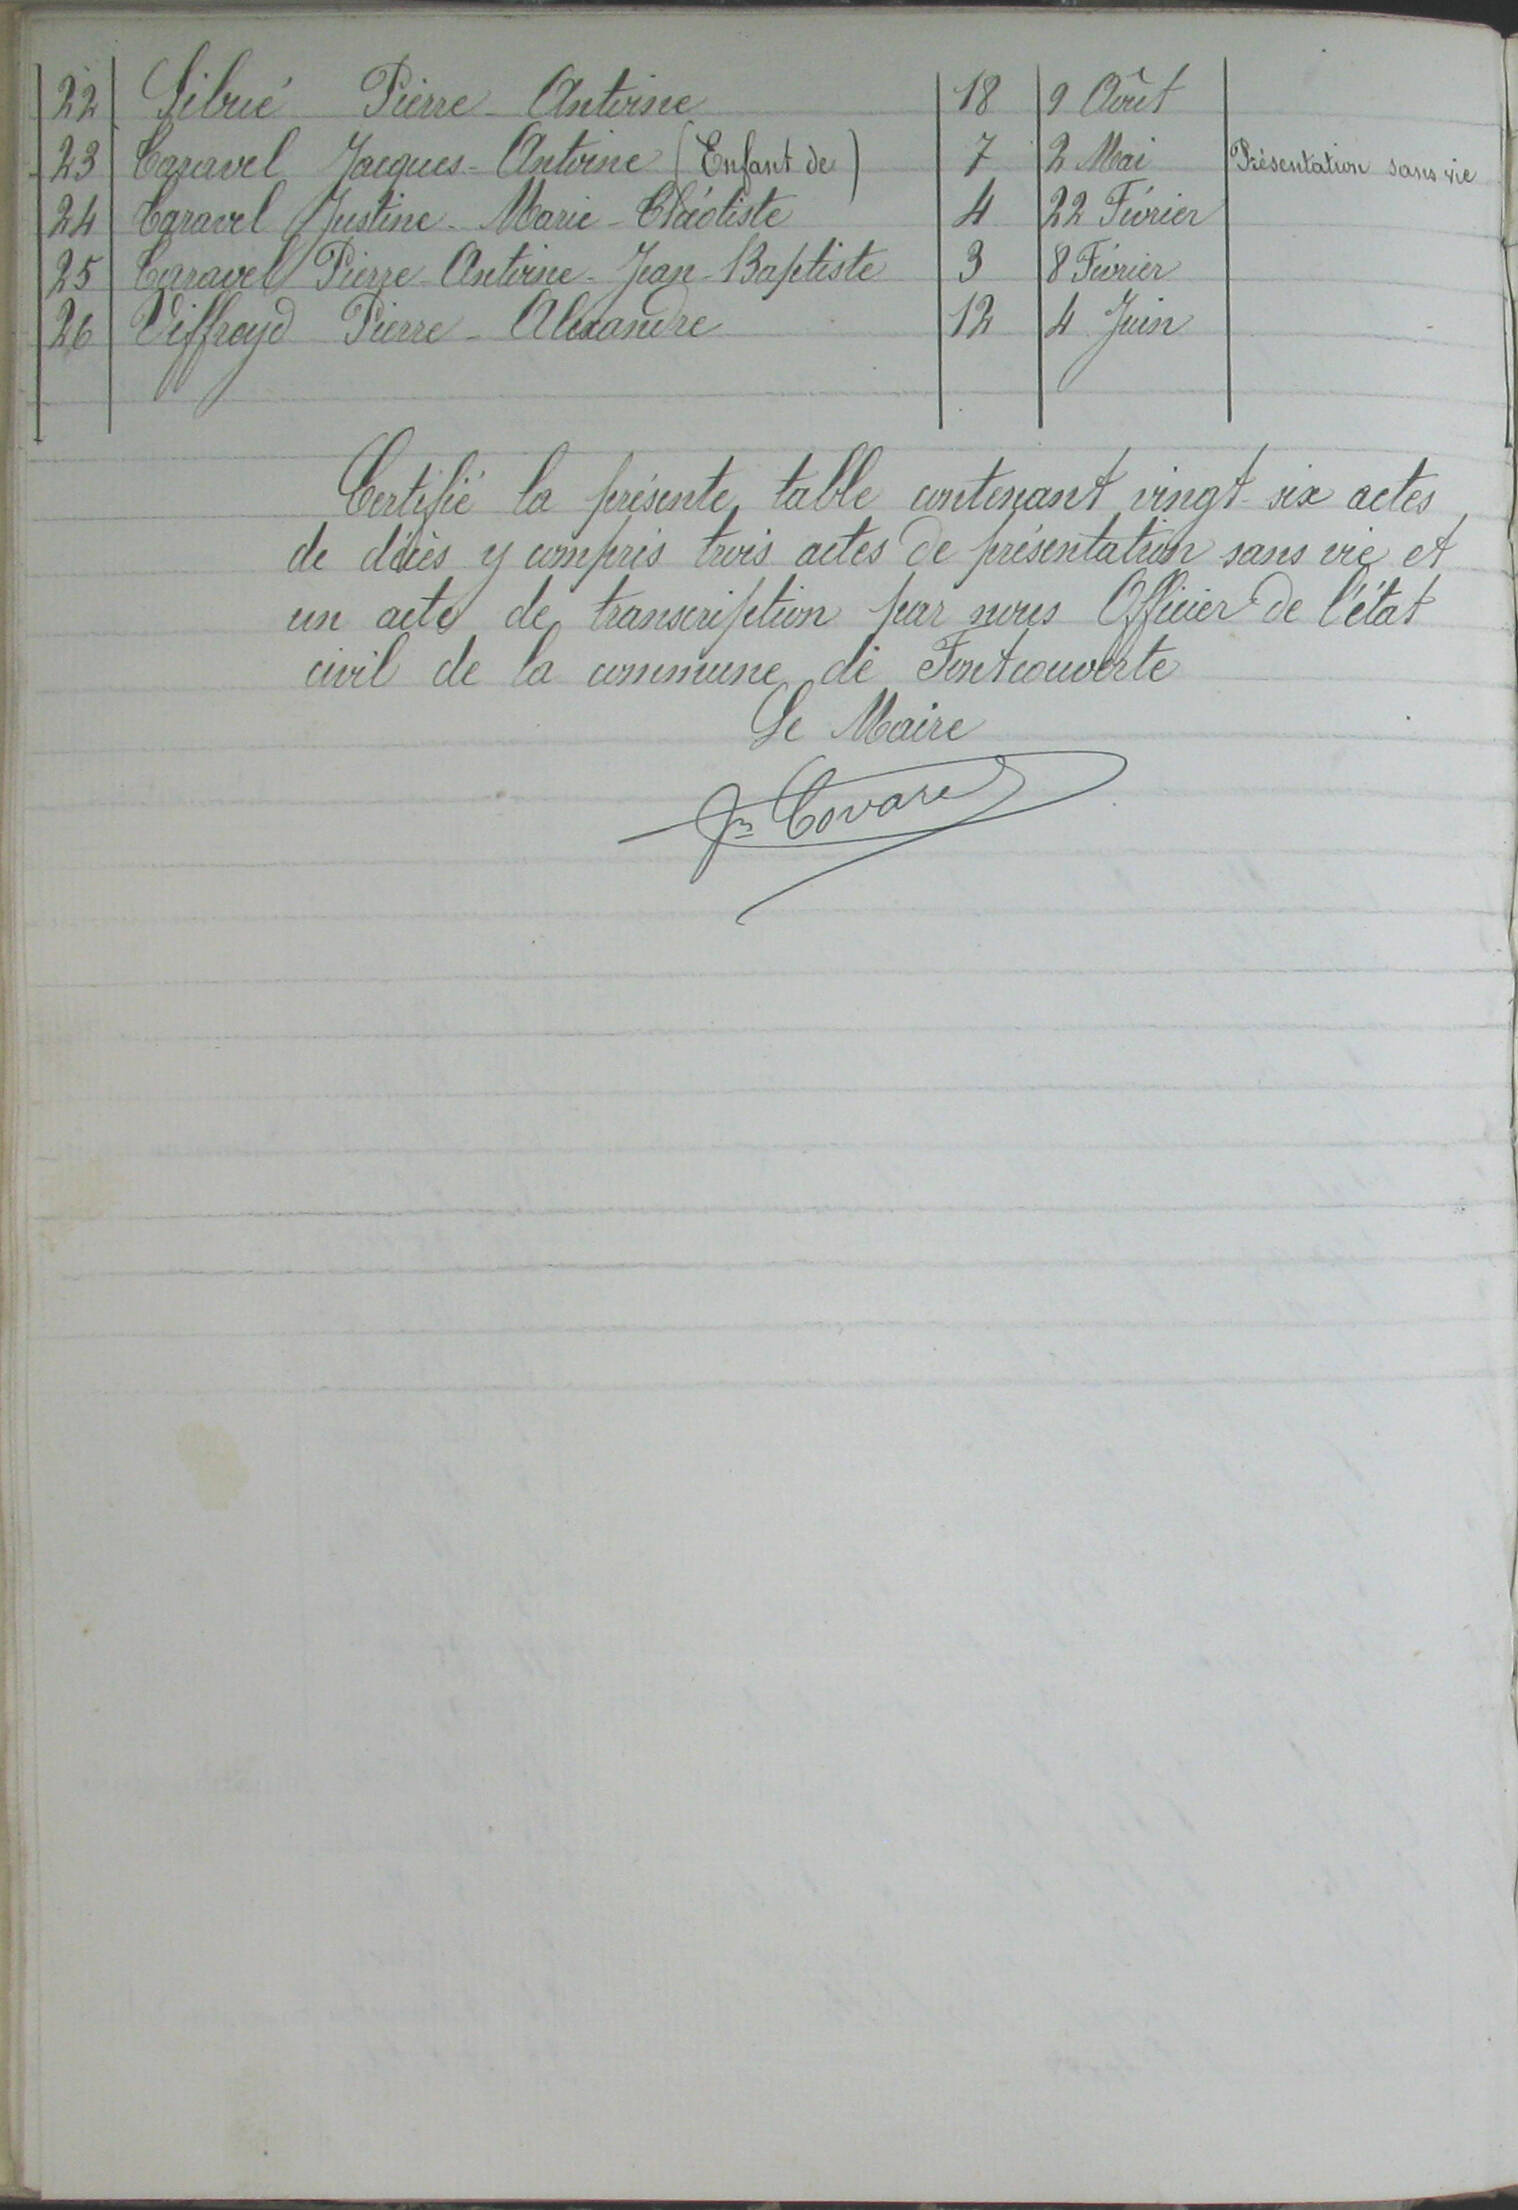 22 Sibué Pierre-Antoine 18 9 Août
23 Taravel Jacques-Antoine (Enfant de) 7 2 Mai Présentation sans vie
24 Taravel Justine-Marie- 4 22 Février
25 Taravel Pierre-Antoine-Jean-Baptiste 3 8 Février
26 Viffroyd Pierre-Alexandre 12 4 Juin
Certifié la présente table contenant vingt-six actes
de décès y compris trois actes de présentation sans vie et
un acte de transcription par nous Officier de l'état
civil de la commune de Fontcouverte
Le Maire
Covarel